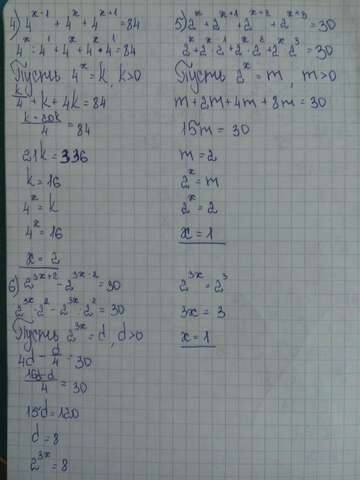 4) 4^(x-1) + 4^x + 4^(x+1) = 84
4^x : 4^1 + 4^x + 4^x · 4^1 = 84
Пусть 4^x = k, k>0
k/4 + k + 4k = 84
k + 20k / 4 = 84
21k = 336
k = 16
4^x = k
4^x = 16
x = 2
5) 2^x + 2^(x+1) + 2^(x+2) + 2^(x+3) = 30
2^x + 2^x · 2^1 + 2^x · 2^2 + 2^x · 2^3 = 30
Пусть 2^x = m, m>0
m + 2m + 4m + 8m = 30
15m = 30
m = 2
2^x = m
2^x = 2
x = 1
6) 2^(3x+2) - 2^(3x-2) = 30
2^(3x) · 2^2 - 2^(3x) : 2^2 = 30
Пусть 2^(3x) = d, d>0
4d - d/4 = 30
16d-d / 4 = 30
15d = 120
d = 8
2^(3x) = 8
2^(3x) = 2^3
3x = 3
x = 1